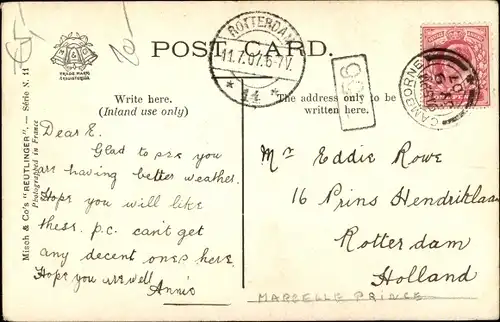 POST CARD.
TRADE MARK
REGISTERED
Write here.
(Inland use only)
The address only to be
written here.
Misch & Co's "REUTLINGER" — Série N. 11
Photographed in France
ROTTERDAM
11.7.07.6-7V.
CAMBORNE
Dear E.
Glad to see you
are having better weather.
Hope you will like
these. p.c. can't get
any decent ones here.
Hope you are well
Annie
Mr Eddie Rowe
16 Prins Hendriklaan
Rotterdam
Holland
MARCELLE PRINCE